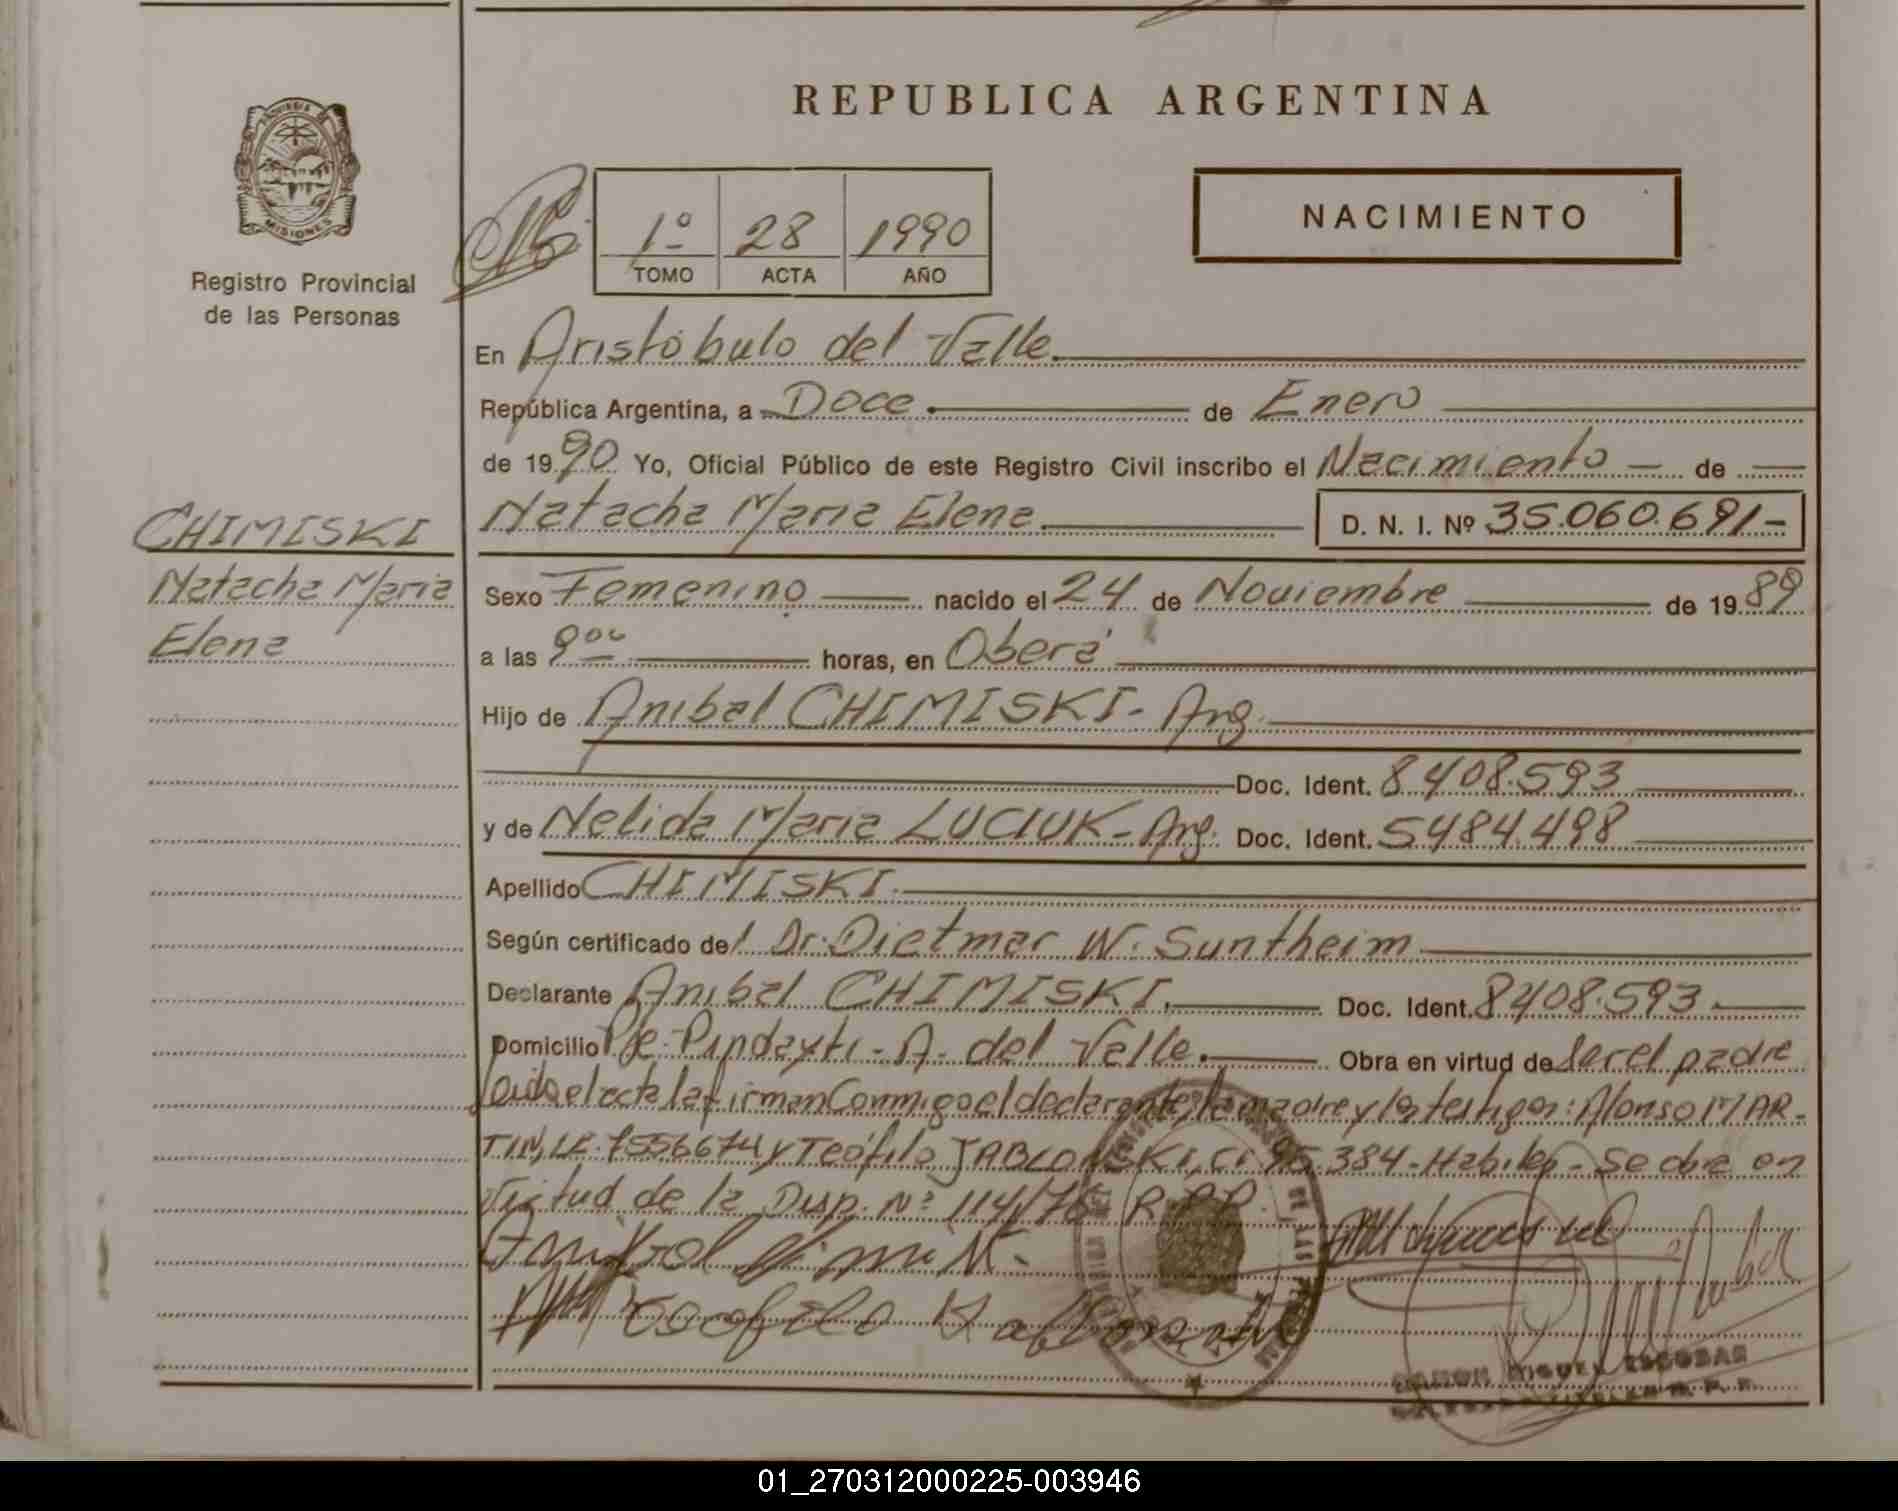 REPUBLICA ARGENTINA
MISIONES
Registro Provincial
de las Personas
1º 28 1990
TOMO ACTA AÑO
NACIMIENTO
En Aristóbulo del Valle.
República Argentina, a Doce. de Enero
de 1990 Yo, Oficial Público de este Registro Civil inscribo el Nacimiento — de —
CHIMISKI
Natacha Maria
Elena
Natacha Maria Elena. D. N. I. Nº 35.060.691-
Sexo Femenino nacido el 24 de Noviembre de 1989
a las 9 00 horas, en Oberá
Hijo de Anibal CHIMISKI- Arg.
Doc. Ident. 8408.593
y de Nelida Maria LUCIUK- Arg. Doc. Ident. 5484.498
Apellido CHIMISKI.
Según certificado del Dr. Dietmar W. Suntheim
Declarante Anibal CHIMISKI. Doc. Ident. 8408.593.
Domicilio Pje- Pindayti- A. del Valle. Obra en virtud de ser el padre
leida el acta la firman Conmigo el declarante, la madre y los testigos: Alonso MAR-
TIN, LE. 7556674 y Teófilo JABLONSKI, CI 95.384- Habiles- Se obra en
virtud de la Disp. Nº 114/76 R.P.P.
RAMON MIGUEL ESCOBAR
01_270312000225-003946